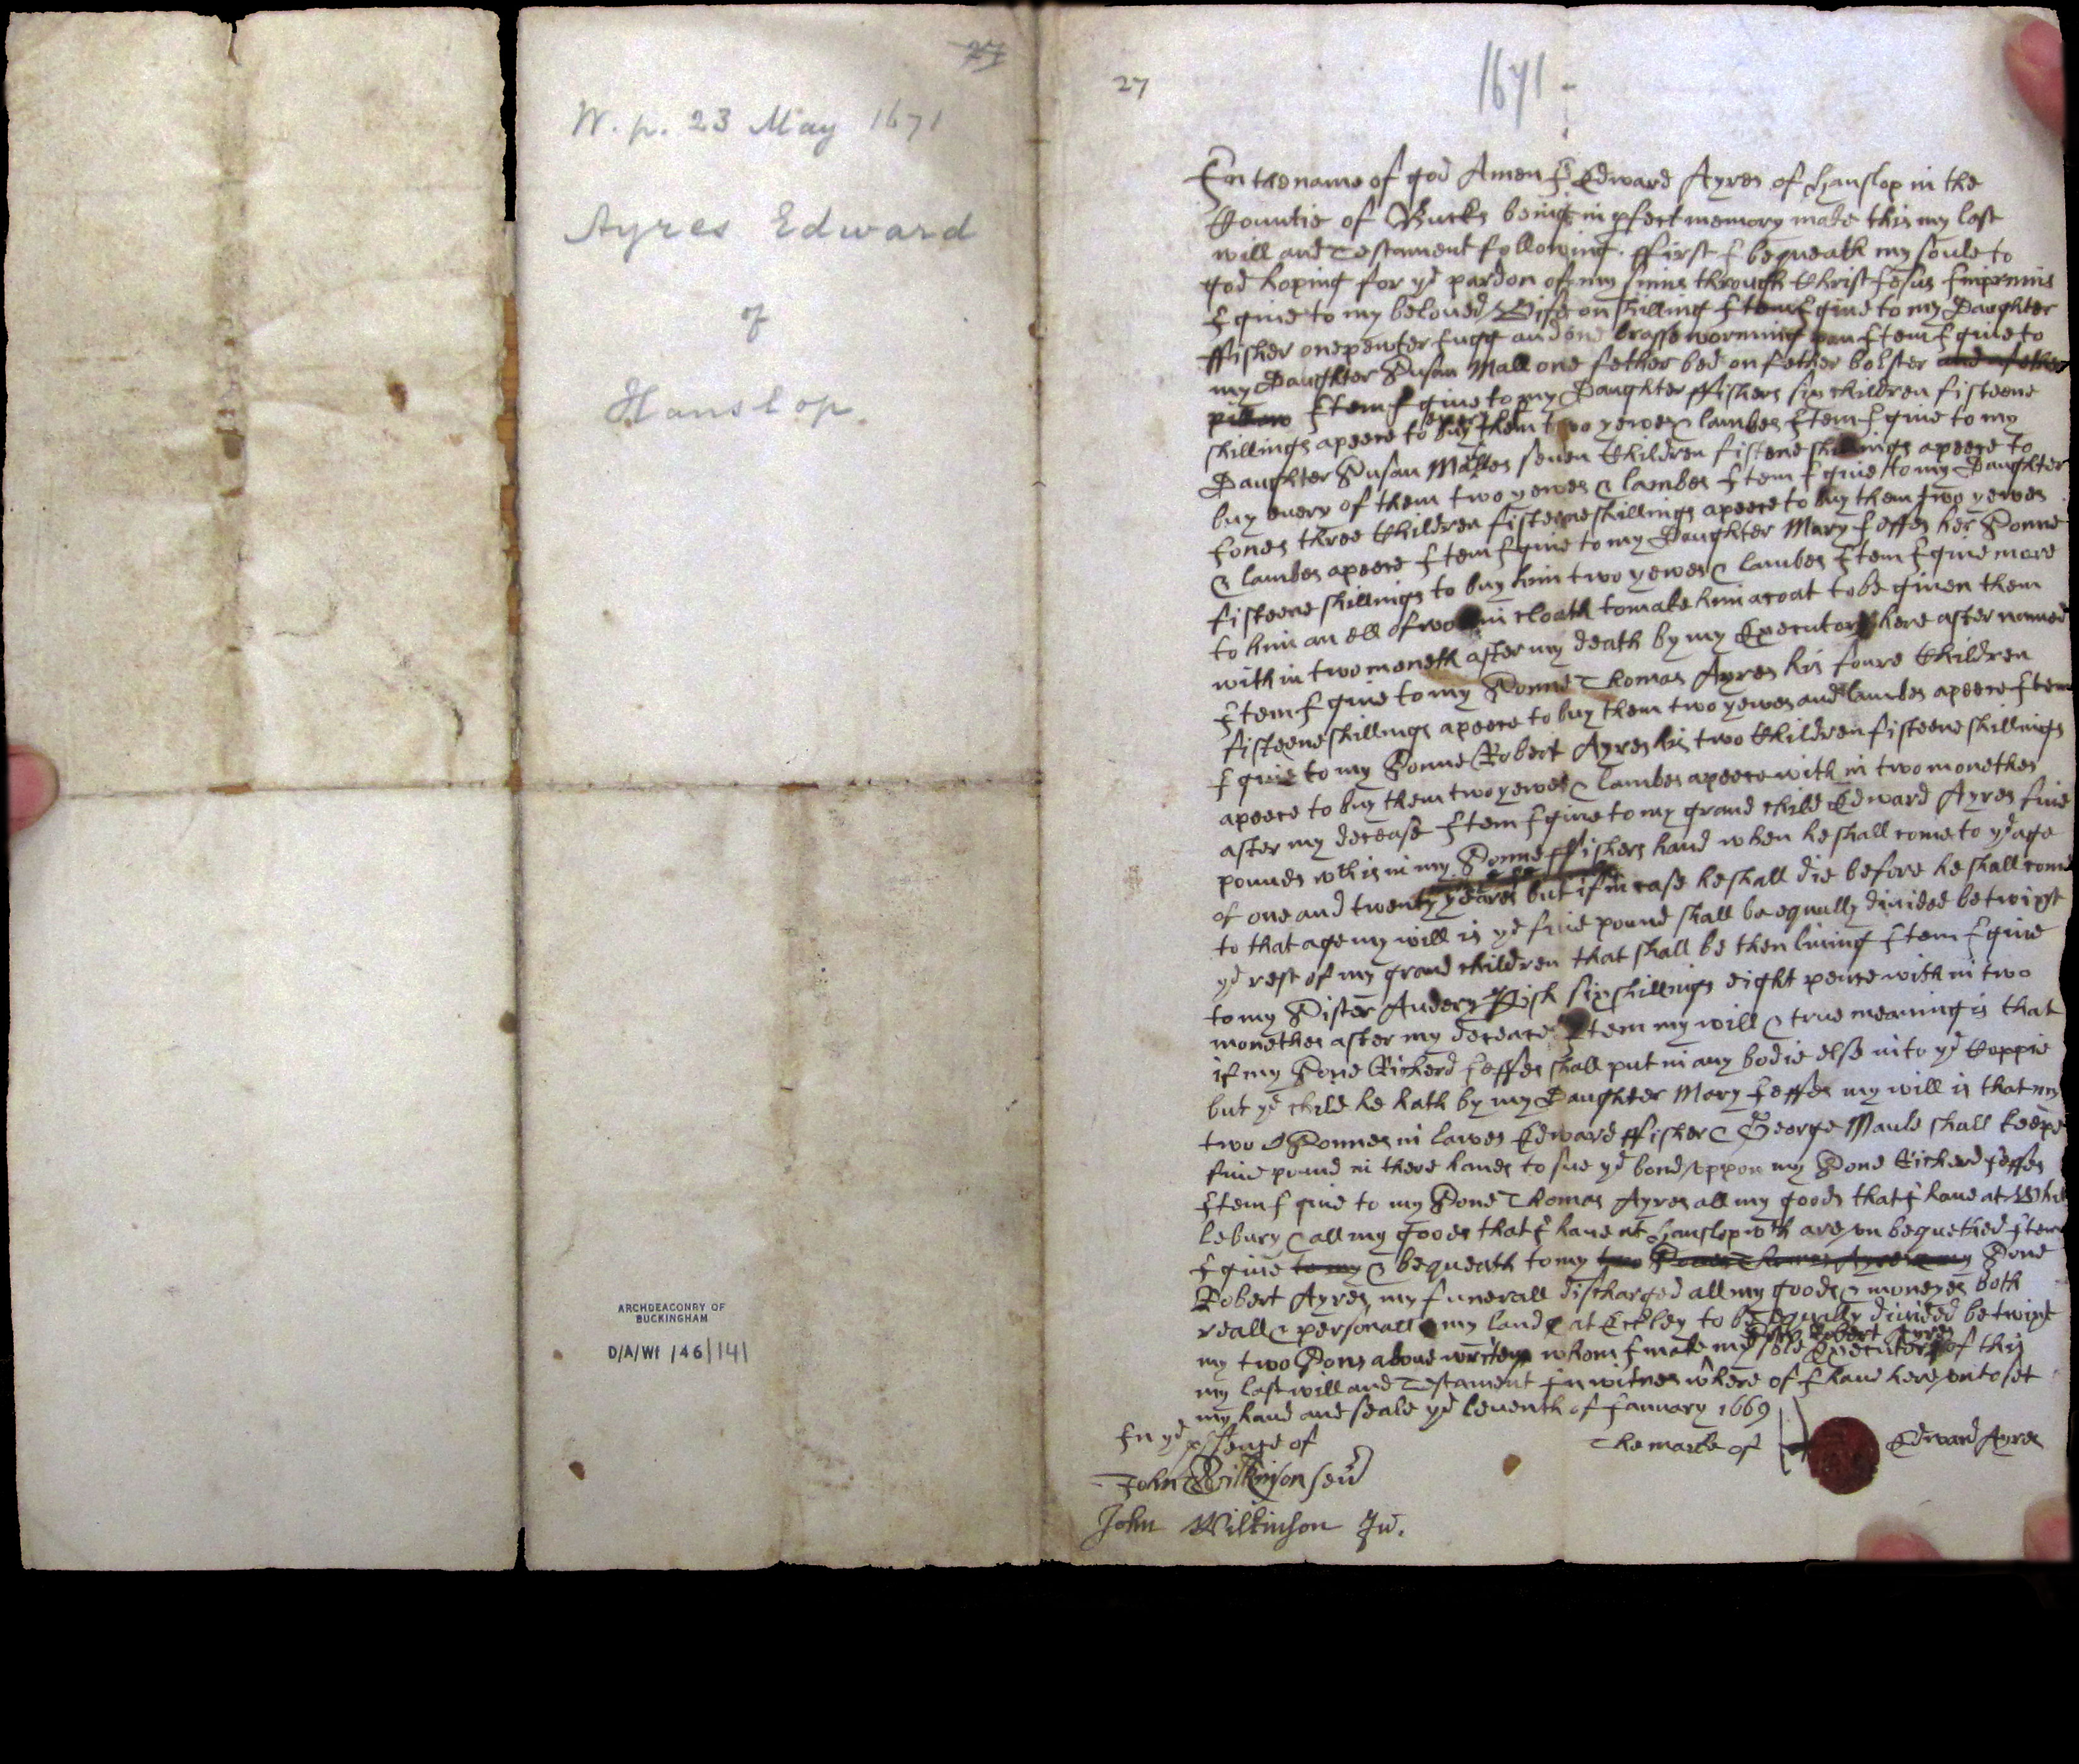 27
W. p. 23 May 1671
Ayres Edward
of
Hanslop
ARCHDEACONRY OF
BUCKINGHAM
D/A/Wf /46/141
27
1671
In the name of god Amen I Edward Ayres of Hanslop in the
Countie of Bucks being in pfect memory make this my last
will and Testament following. ffirst I bequeath my soule to
god hoping for ye pardon of my sinns through Christ Jesus Imprimis
I giue to my beloued Wife on shilling Item I giue to my Daughter
ffisher one pewter Jugg and one brasse worming pan Item I giue to
my Daughter Susan Mall one fether bed on fether bolster and a fether
pillow Item I giue to my Daughter ffishers six children fifteene
shillings apeece to buy them two yewes & lambes Item I giue to my
Daughter Susan Malles seuen Children fifteene shillings apeece to
buy euery of them two yewes & lambes Item I giue to my Daughter
Jones three Children fifteene shillings apeece to buy them two yewes
& lambes apeece Item I giue to my Daughter Mary Jeffes her Sonne
fifteene shillings to buy him two yewes & lambes Item I giue more
to him an ell of wollin cloath to make him a coat to be giuen them
within two moneth after my death by my Executor here after named
Item I giue to my Sonne Thomas Ayres his foure Children
fifteene shillings apeece to buy them two yewes and lambes apeece Item
I giue to my Sonne Robert Ayres his two Children fifteene shillings
apeece to buy them two yewes & lambes apeece with in two monethes
after my decease Item I giue to my grand child Edward Ayres fiue
pounds wch is in my Sonne ffishers hand when he shall come to ye age
of one and twenty yeares but if in case he shall die before he shall come
to that age my will is ye fiue pound shall be equally diuided betwixt
ye rest of my grand children that shall be then liuing Item I giue
to my Sister Audery ffish six shillings eight pence with in two
monethes after my deceace Item my will & true meaning is that
if my Sone Richerd Jeffes shall put in any bodie else into ye Coppie
but ye child he hath by my Daughter Mary Jeffes my will is that my
two Sonnes in lawes Edward ffisher & George Maule shall keepe
fiue pound in there hands to sue ye bond vppon my Sone Richerd Jeffes
Item I giue to my Sone Thomas Ayres all my goods that I haue at Whit
lebury & all my goods that I haue at Hanslop wch are vn bequethed Item
I giue to my & bequeath to my two Sones Thomas Ayres & my Sone
Robert Ayres my funerall discharged all my goods & moneyes both
reall & personall my land at Eckley to be equally diuided betwixt
my two Sons aboue writen whom I make my sole Robert Ayres Executor of this
my last will and Testament In witnes where of I haue here vnto set
my hand and seale ye leuenth of January 1669
In ye psence of
The marke of Edward Ayres
John Wilkinson senr
John Wilkinson Ju.